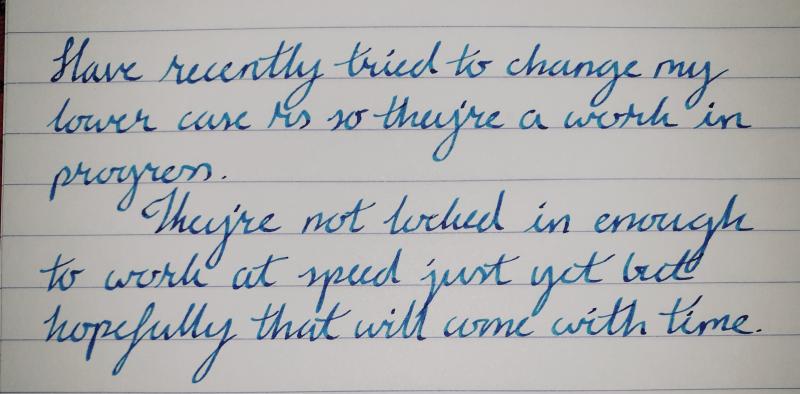 Have recently tried to change my
lower case rs so they're a work in
progress.
They're not locked in enough
to work at speed just yet but
hopefully that will come with time.